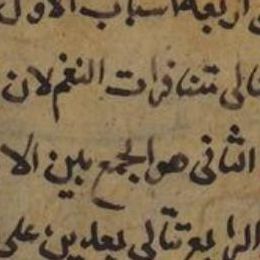 اربعة اسباب الاول
تتنافرات النغم لان
الثانى هو الجمع بين الا
الرابع تتالى بعدين على